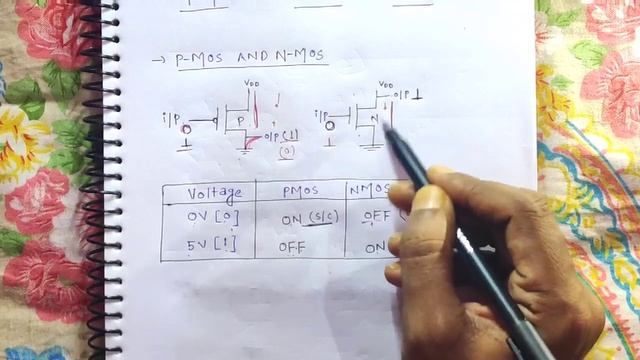 → P-MOS AND N-MOS
VDD VDD
i/P P o/P (1) (0)
0 1
i/P N o/P 1
0 1
Voltage PMOS NMOS
0V [0] ON (S/C) OFF (
5V [1] OFF ON